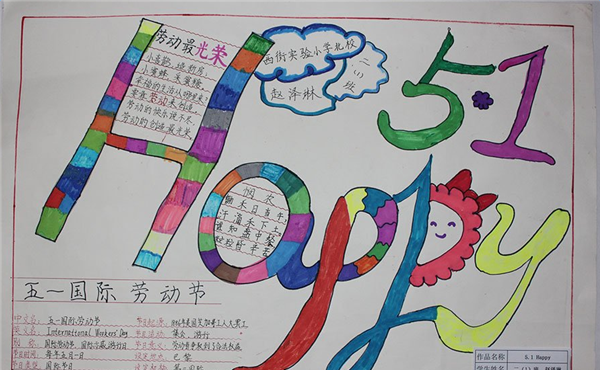 劳动最光荣
小喜鹊,造新房,
小蜜蜂,采蜜糖,
幸福的生活从哪里来?
要靠劳动来创造。
劳动的快乐说不尽,
劳动的创造最光荣。
西街实验小学北校
二(1)班
赵泽林
5.1
Happy
悯农
锄禾日当午,
汗滴禾下土。
谁知盘中餐,
粒粒皆辛苦。
五一国际劳动节
中文名: 五一国际劳动节
英文名: International Workers' Day
节日时间: 每年五月一日
节日类型: 国际节日
作品名称 5.1 Happy
学生姓名 二(1)班